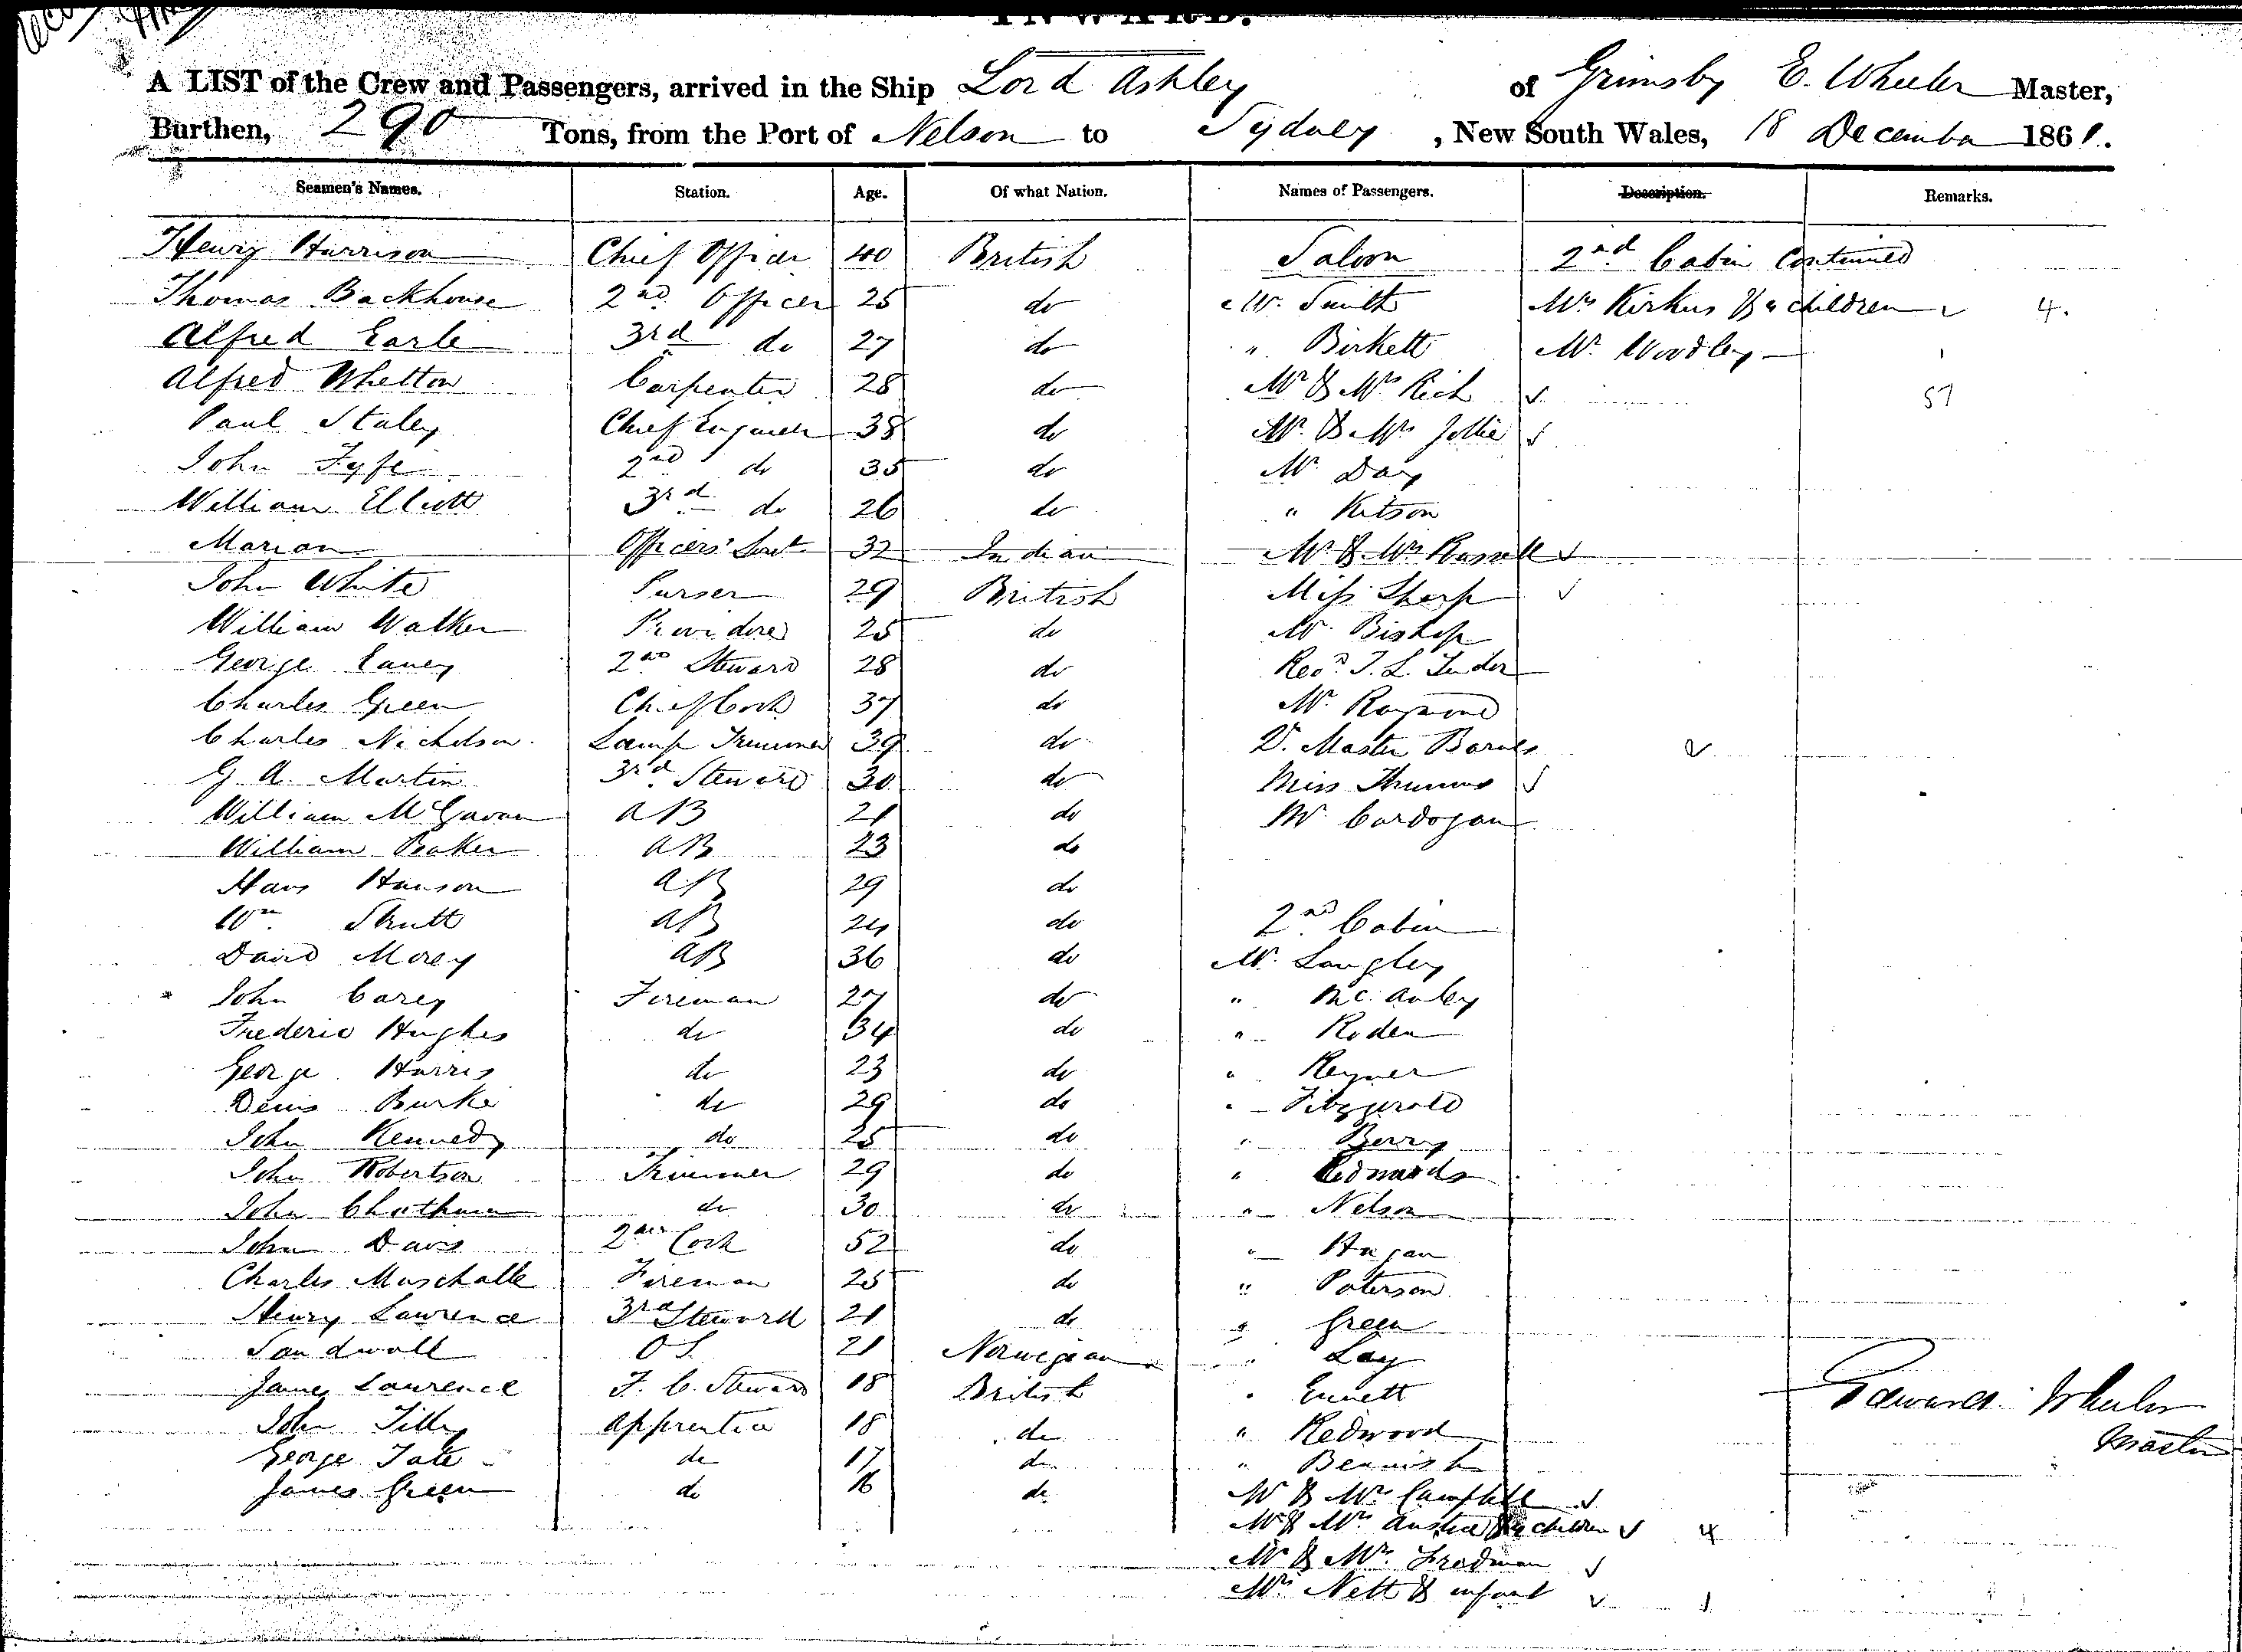 INWARD.
A LIST of the Crew and Passengers, arrived in the Ship Lord Ashley of Grimsby E. Wheeler Master,
Burthen, 290 Tons, from the Port of Nelson to Sydney, New South Wales, 18 December 1861.
Seamen's Names. Station. Age. Of what Nation. Names of Passengers. Description. Remarks.
Henry Harrison Chief Officer 40 British Saloon 2nd Cabin Continued
Thomas Backhouse 2nd Officer 25 do Mr. Smith Mrs Kirkus & 4 children 4.
Alfred Earle 3rd do 27 do " Birkett Mr. Woodley 1
Alfred Whelton Carpenter 28 do Mr & Mrs Rich 57
Paul Staley Chief Engineer 38 do Mr. & Mrs Jollie
John Fyfe 2nd do 35 do Mr Day
William Elliott 3rd do 26 do " Kitson
Marian Officers' Servt 32 Indian Mr & Mrs Russell
John White Purser 29 British Miss Sharp
William Walker Providore 25 do Mr Bishop
George Laney 2nd Steward 28 do Revd. T. L. Tudor
Charles Green Chief Cook 37 do Mr. Raymond
Charles Nicholson Lamp Trimmer 39 do D. Master Barnes
G A. Martin 3rd Steward 30 do Miss
William McGavan AB 21 do Mr. Cardogan
William Baker AB 23 do
Hans Hanson AB 29 do
Wm. Strutt AB 24 do 2nd Cabin
David Morey AB 36 do Mr. Langley
John Carey Fireman 27 do " McAuley
Frederic Hughes do 34 do " Roden
George Harris do 23 do " Reyner
Denis Burke do 29 do " Fitzgerald
John Kennedy do 25 do " Berry
John Robertson Trimmer 29 do " Edwards
John Chatham do 30 do " Nelson
John Davis 2nd Cook 52 do " Hagan
Charles Maschalle Fireman 25 do " Paterson
Henry Lawrence 3rd Steward 21 do " Green
Sandwall OS 21 Norwegian " Lay
James Lawrence F. C. Steward 18 British " Emett
Edward Wheeler
John Tilly Apprentice 18 do " Redwood
Master
George Tate do 17 do " Beamish
James Green do 16 do Mr & Mrs Campbell
Mr & Mrs Austin & 4 children 4
Mr & Mrs. Fredman
Mrs Nett & infant 1